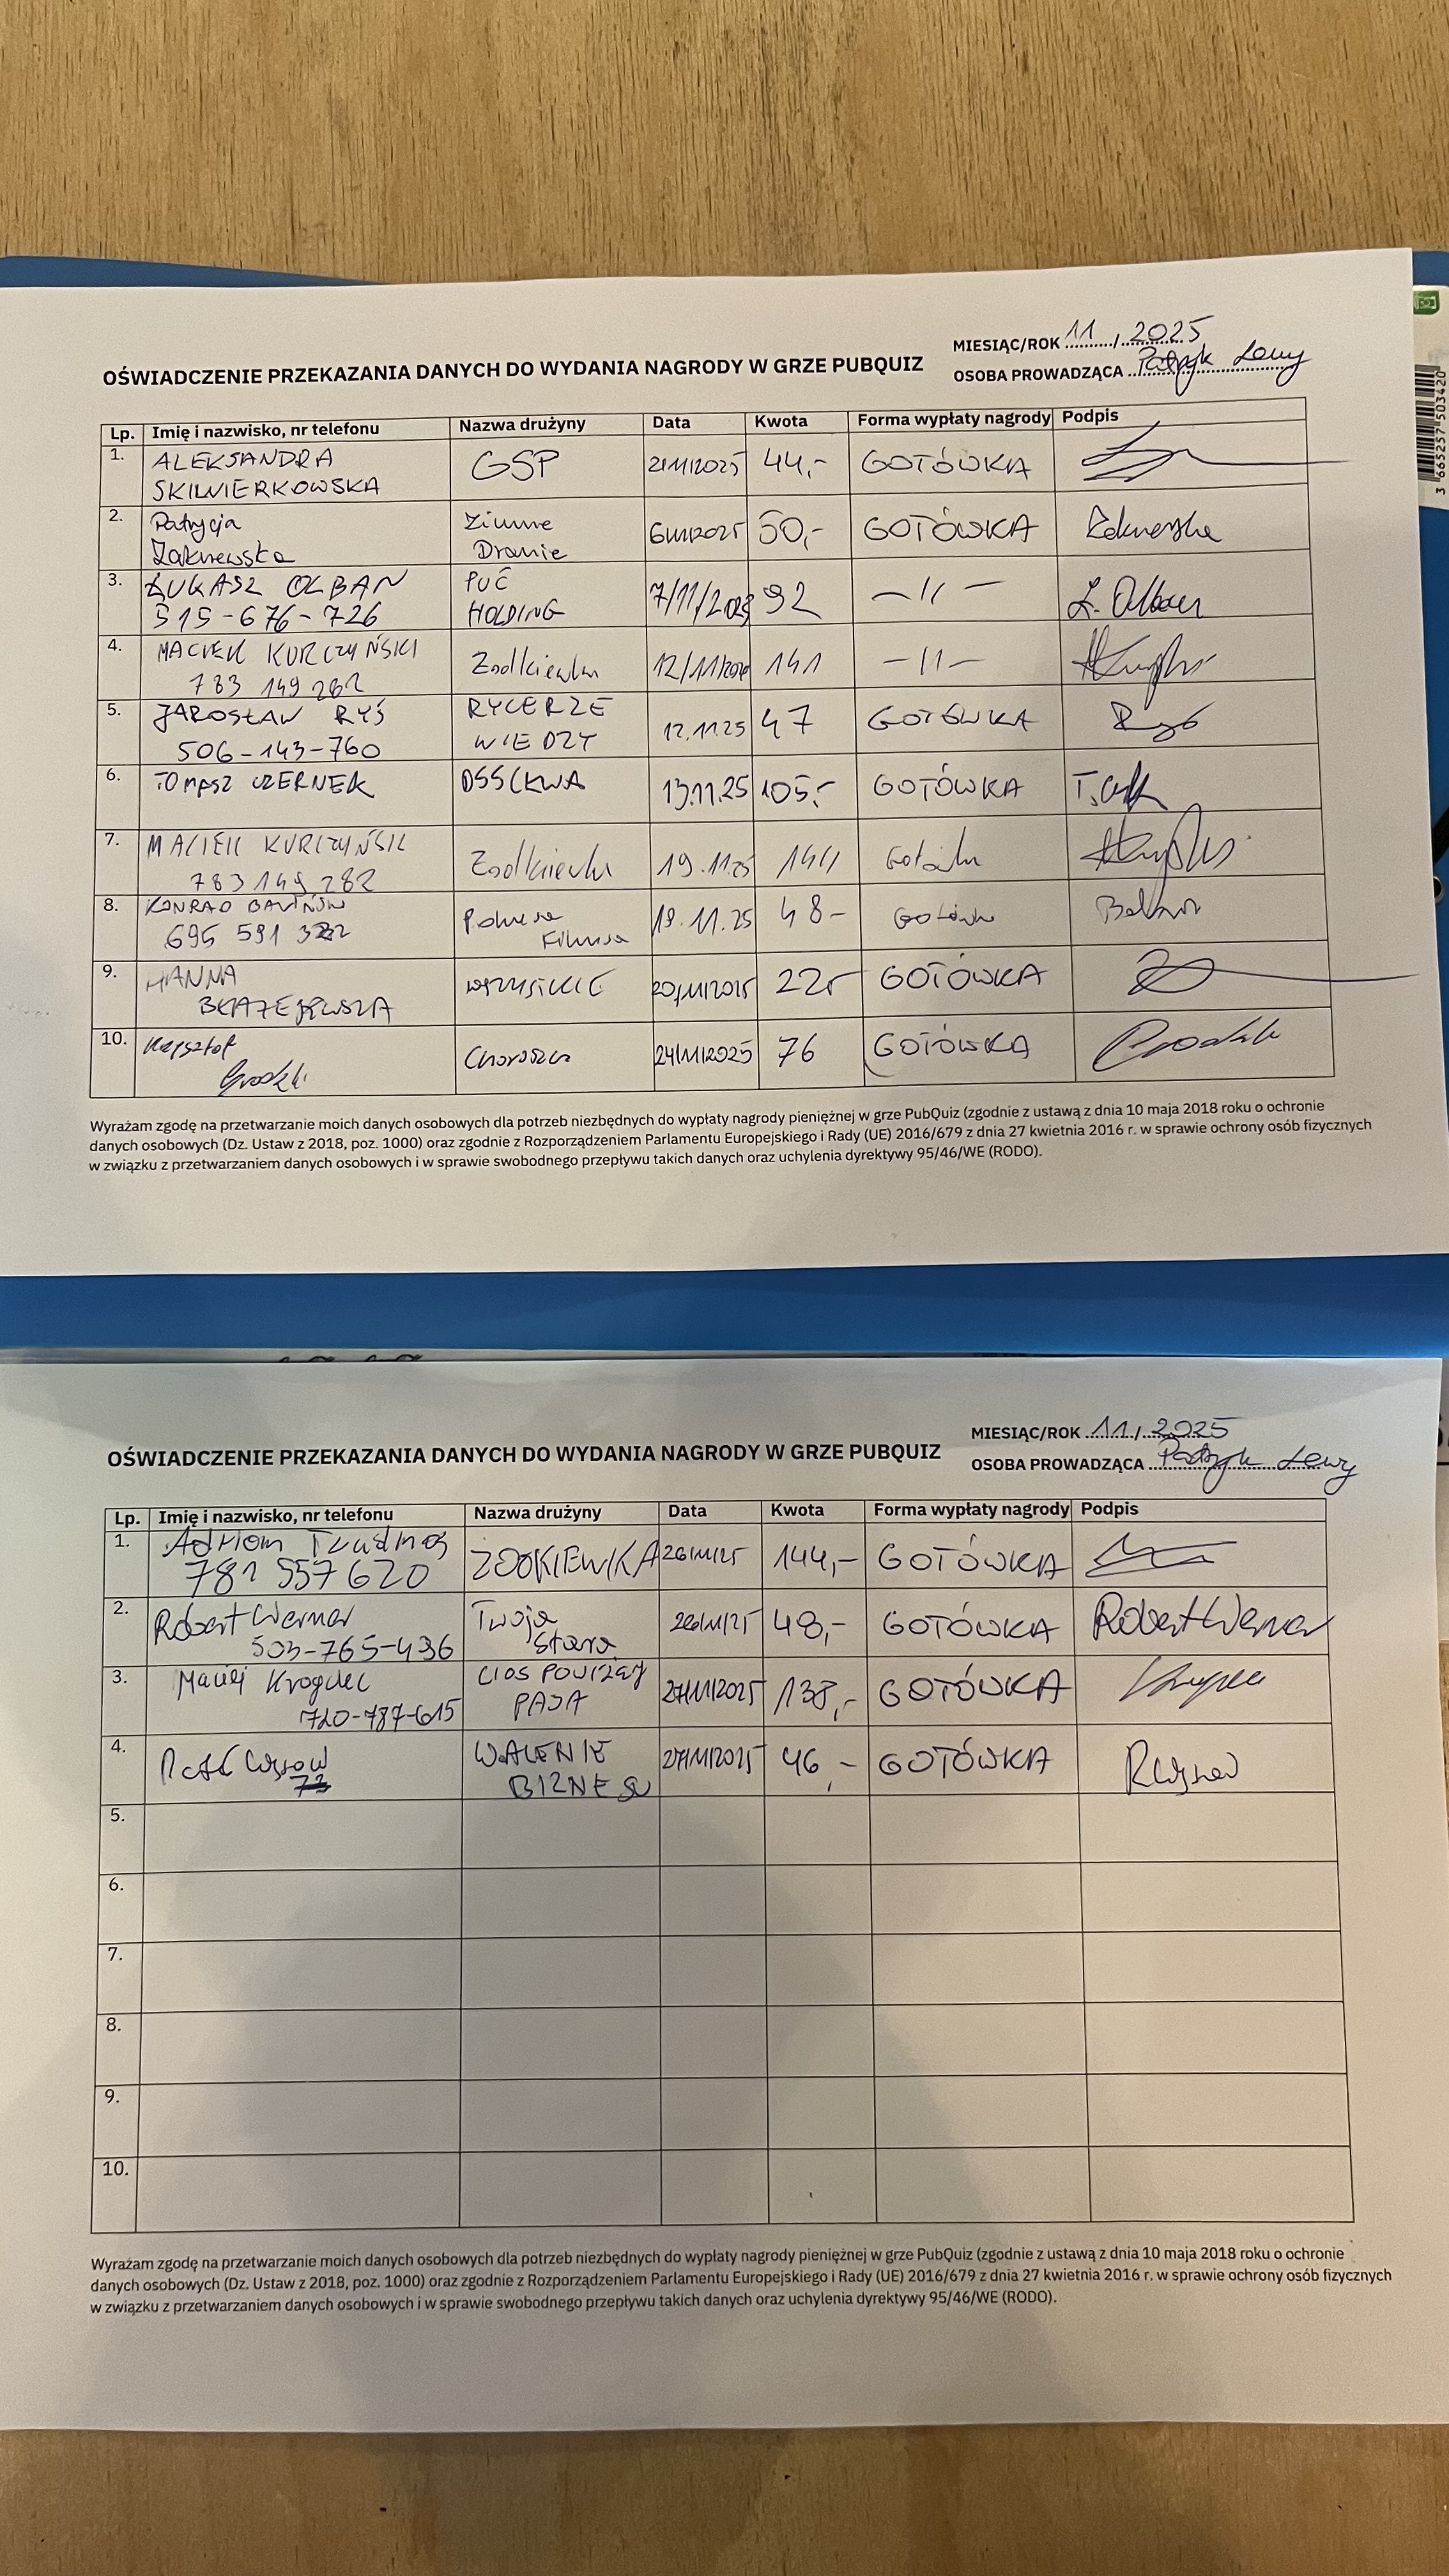 MIESIĄC/ROK 11 / 2025
OŚWIADCZENIE PRZEKAZANIA DANYCH DO WYDANIA NAGRODY W GRZE PUBQUIZ
OSOBA PROWADZĄCA Patryk Lewy
Lp. Imię i nazwisko, nr telefonu Nazwa drużyny Data Kwota Forma wypłaty nagrody Podpis
1. ALEKSANDRA GSP 44,- GOTÓWKA
SKIWIERKOWSKA
2. Patrycja Zimne 50,- GOTÓWKA
Dranie
3. ŁUKASZ OLBAN PUĆ 7/11/2025 92 —//— Ł. Olban
515-676-726 HOLDING
4. MACIEK KURCZYŃSKI 141 —//—
783 149 282
5. JAROSŁAW RYŚ RYCERZE 12.11.25 47 GOTÓWKA Ryś
506-143-760 WIEDZY
6. TOMASZ CZERNEK 13.11.25 105,- GOTÓWKA
7. MACIEK KURCZYŃSKI 19.11.25 144
783 149 282
8. KONRAD 19.11.25 48-
695 591
9. HANNA WSZYSTKIE 20/11/2025 GOTÓWKA
10. Krzysztof Choroszcz 24/11/2025 76 GOTÓWKA
Grodzki
Wyrażam zgodę na przetwarzanie moich danych osobowych dla potrzeb niezbędnych do wypłaty nagrody pieniężnej w grze PubQuiz (zgodnie z ustawą z dnia 10 maja 2018 roku o ochronie
danych osobowych (Dz. Ustaw z 2018, poz. 1000) oraz zgodnie z Rozporządzeniem Parlamentu Europejskiego i Rady (UE) 2016/679 z dnia 27 kwietnia 2016 r. w sprawie ochrony osób fizycznych
w związku z przetwarzaniem danych osobowych i w sprawie swobodnego przepływu takich danych oraz uchylenia dyrektywy 95/46/WE (RODO).
3 665257 503420
MIESIĄC/ROK 11 / 2025
OŚWIADCZENIE PRZEKAZANIA DANYCH DO WYDANIA NAGRODY W GRZE PUBQUIZ
OSOBA PROWADZĄCA Patryk Lewy
Lp. Imię i nazwisko, nr telefonu Nazwa drużyny Data Kwota Forma wypłaty nagrody Podpis
1. Adrian 26/11/25 144,- GOTÓWKA
781 557 620
2. Robert Werner Twoja 26/11/25 48,- GOTÓWKA Robert Werner
503-765-436 Stara
3. Maciej CIOS PONIŻEJ 27/11/2025 138,- GOTÓWKA
720-787-615 PASA
4. WALENIE 27/11/2025 46,- GOTÓWKA
5.
6.
7.
8.
9.
10.
Wyrażam zgodę na przetwarzanie moich danych osobowych dla potrzeb niezbędnych do wypłaty nagrody pieniężnej w grze PubQuiz (zgodnie z ustawą z dnia 10 maja 2018 roku o ochronie
danych osobowych (Dz. Ustaw z 2018, poz. 1000) oraz zgodnie z Rozporządzeniem Parlamentu Europejskiego i Rady (UE) 2016/679 z dnia 27 kwietnia 2016 r. w sprawie ochrony osób fizycznych
w związku z przetwarzaniem danych osobowych i w sprawie swobodnego przepływu takich danych oraz uchylenia dyrektywy 95/46/WE (RODO).